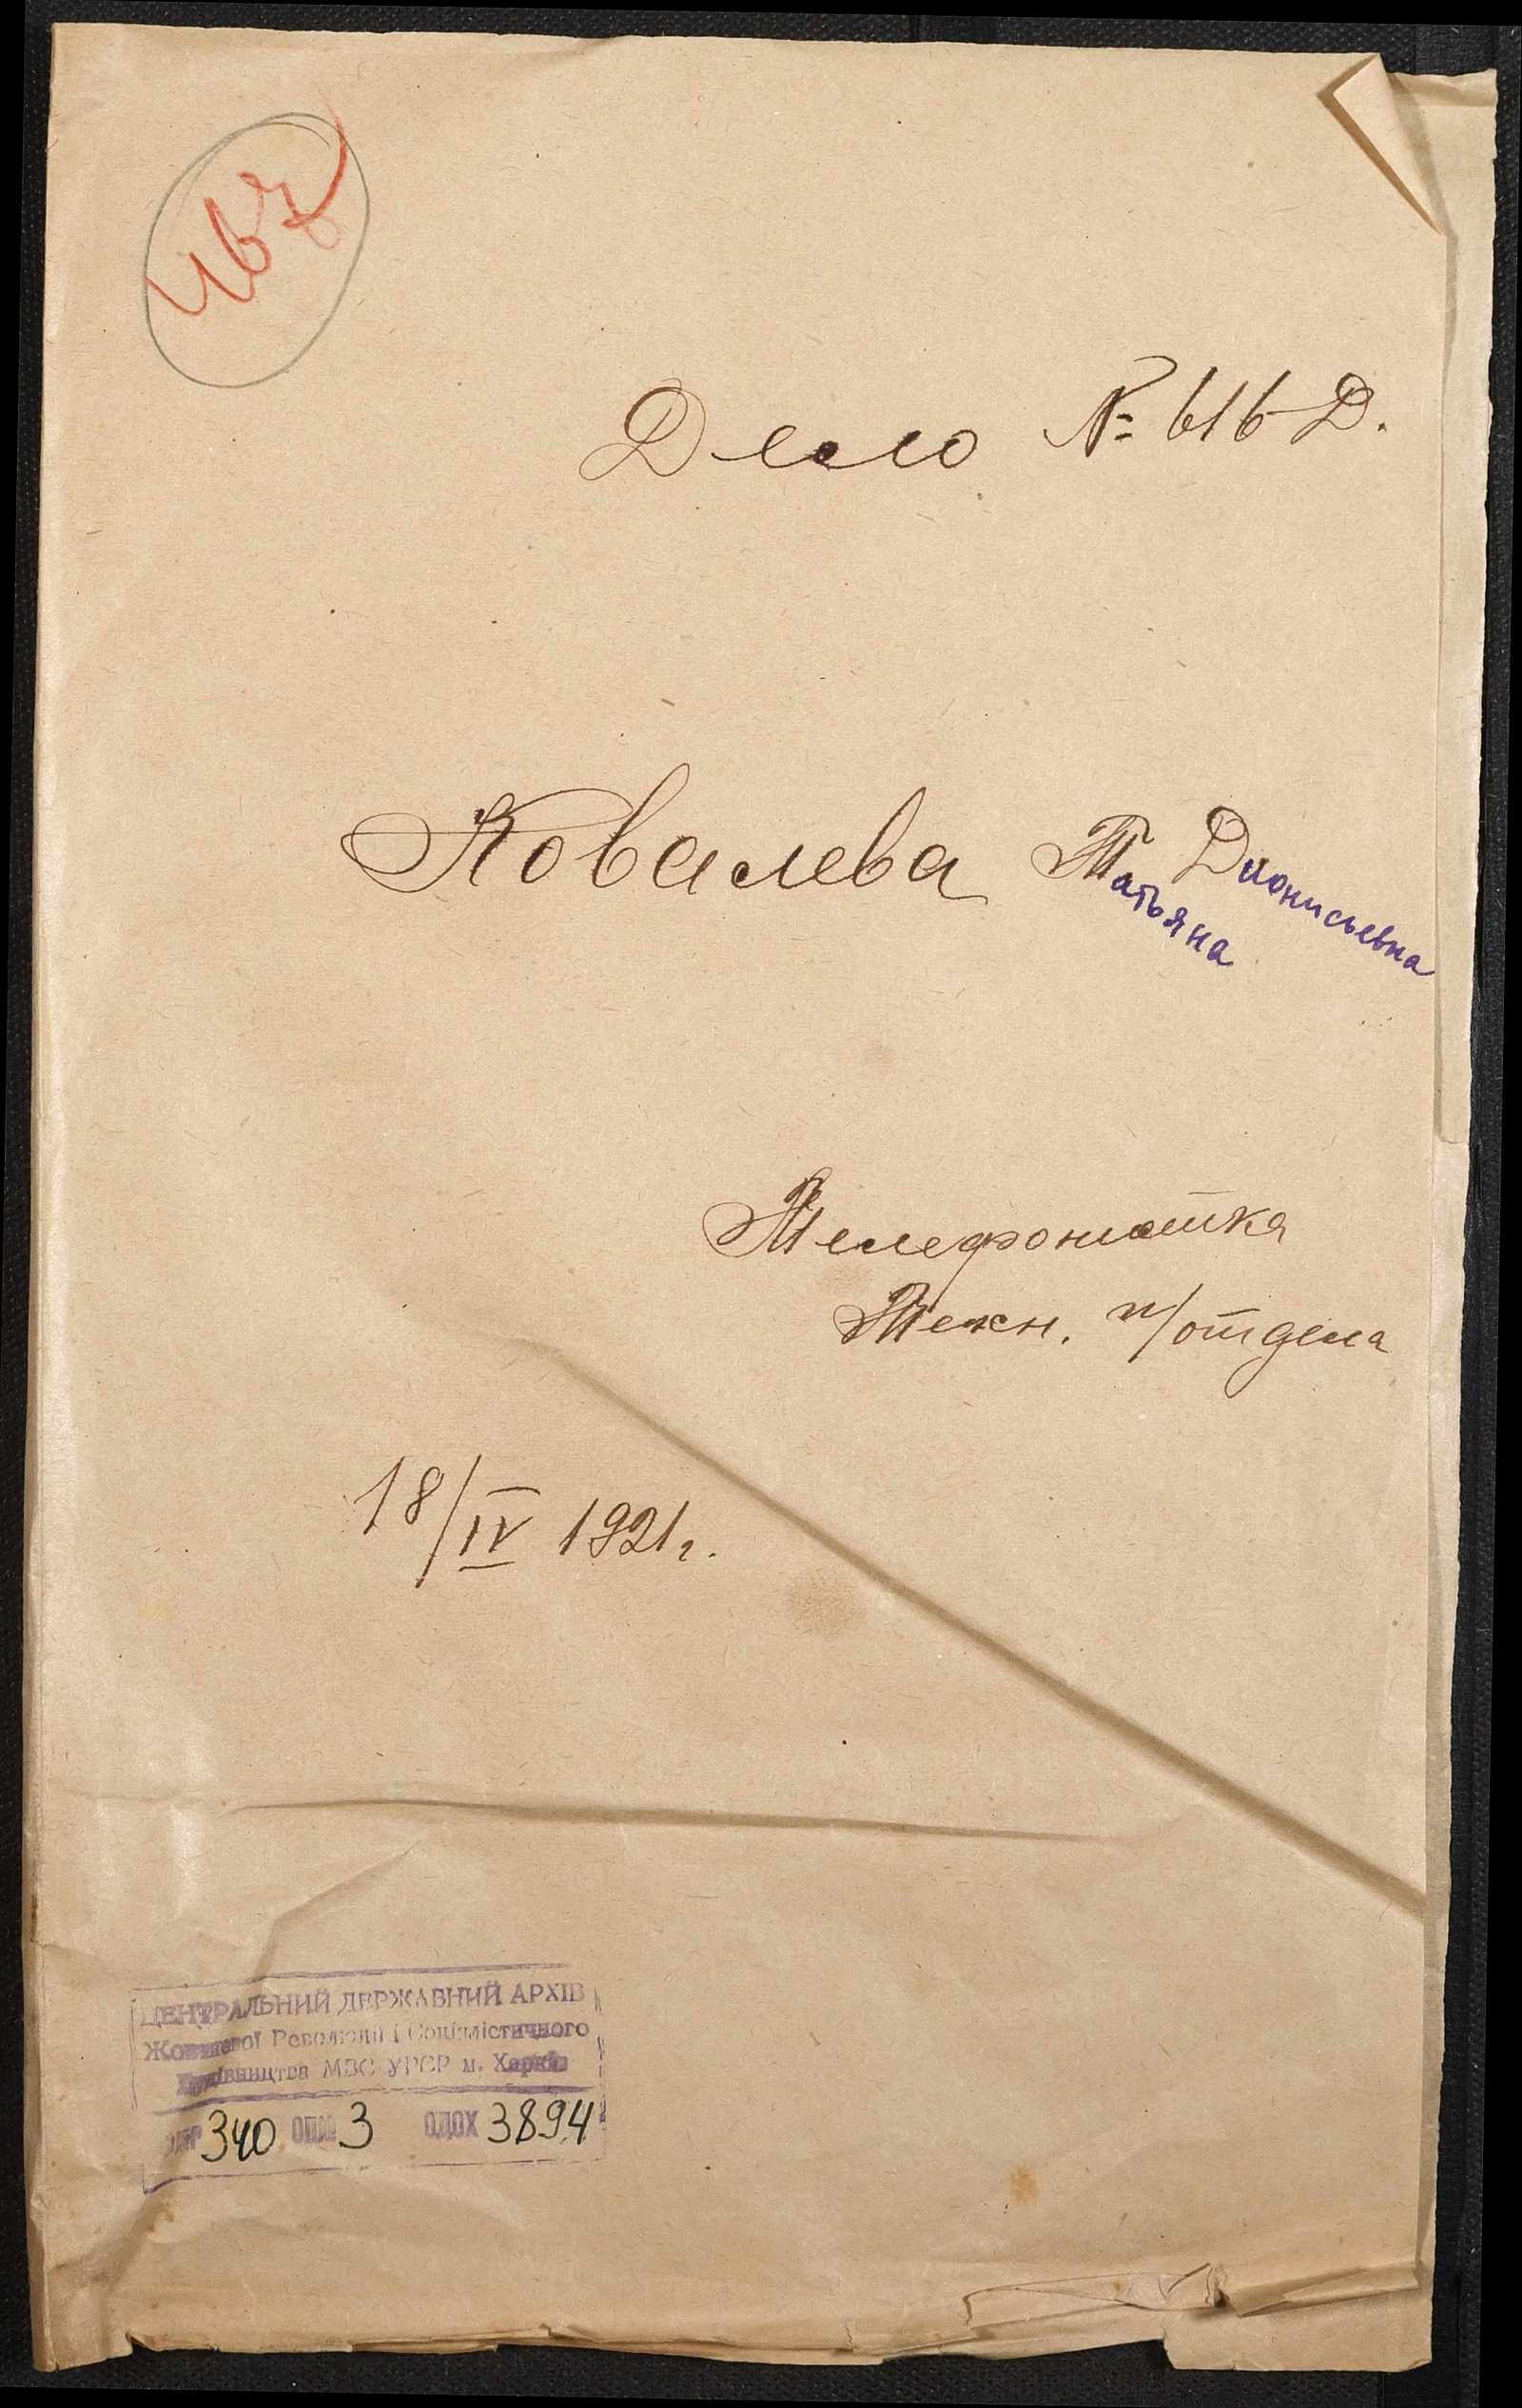 467
Дело № 616 Д.
Ковалева Татьяна Дионисьевна
Телефонистка
Техн. п/отдела
18/IV 1921 г.
ЦЕНТРАЛЬНИЙ ДЕРЖАВНИЙ АРХІВ
Жовтневої Революції і Соціалістичного
Будівництва МВС УРСР м. Харків
340 ОПИС 3 ОДОХ 3894